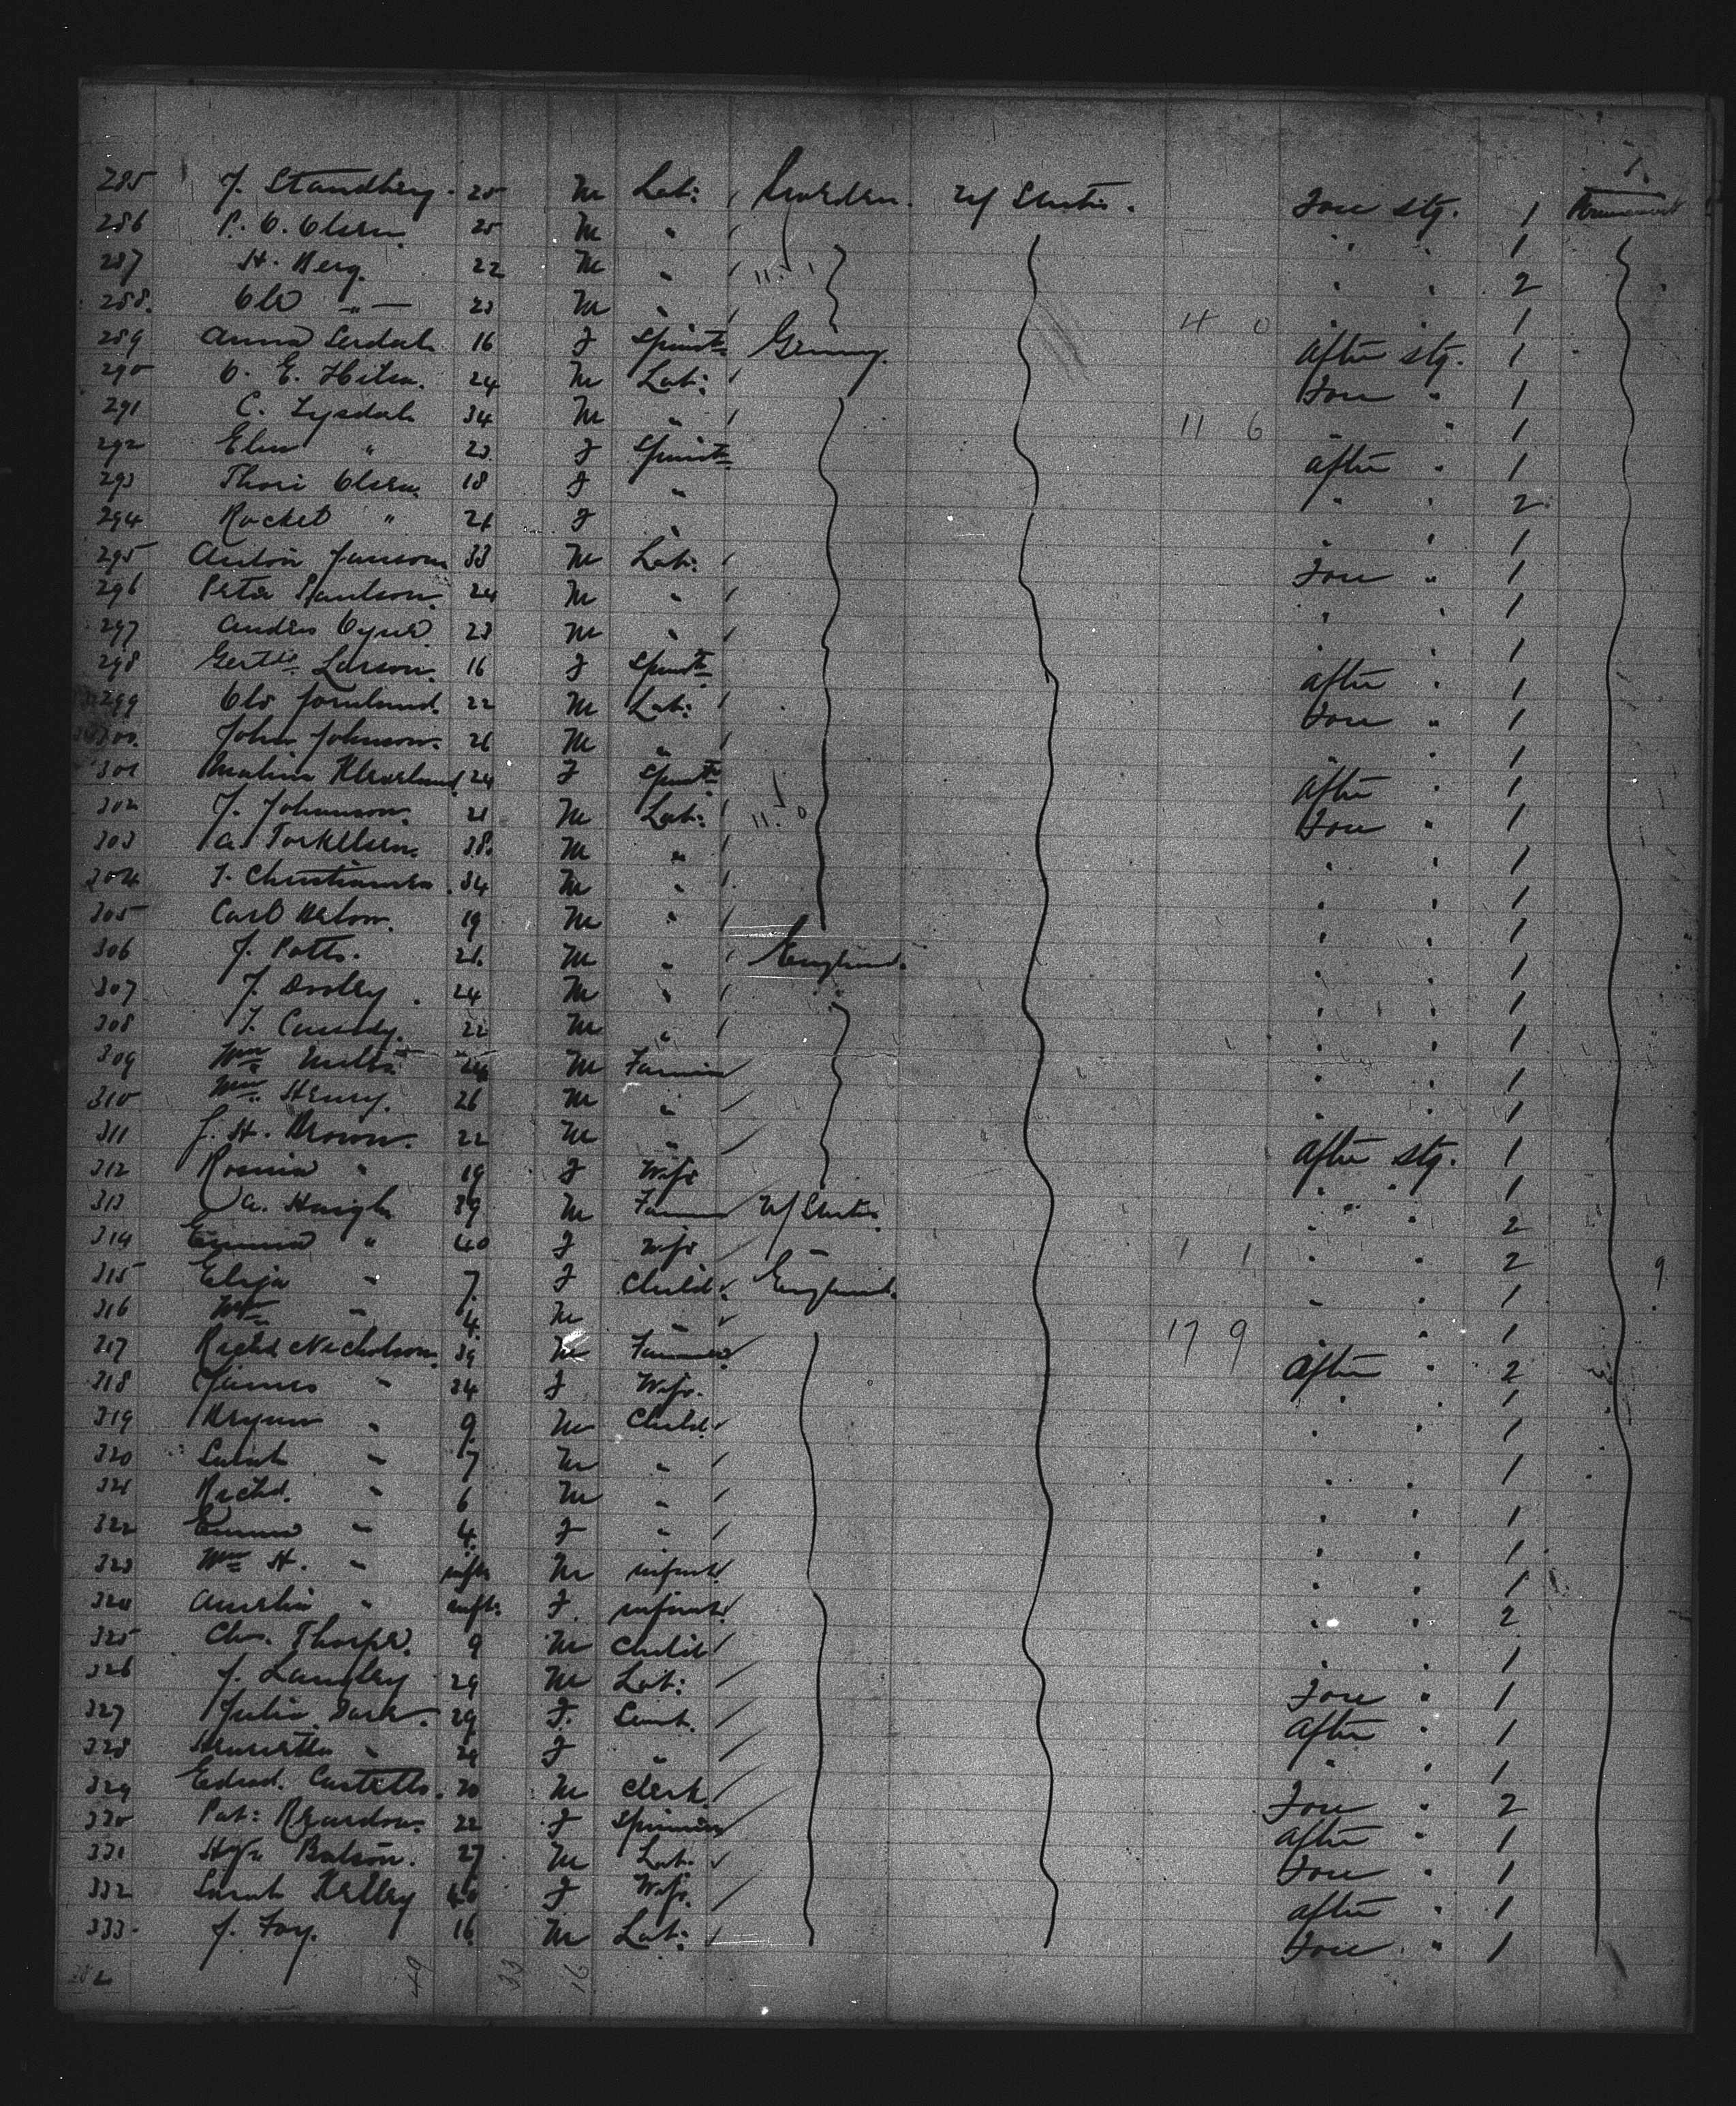 285 J. Standberg. 25 M Lab: Sweden. U/ States. Fore stg. 1 Permanent
286 P. O. Olsen. 25 M " " " 1
287 H. Berg. 22 M " 11. 1 " " 2
288. Ole " 23 M " 4 0 " " 1
289 Anna Serdal 16 F Spinstr Germy. After stg. 1
290 O. E. 24 M Lab: Fore " 1
291 C. Lysdal 34 M " 11 6 " 1
292 Elen " 23 F Spinstr After " 1
293 Thori Olsen. 18 F " " " 2
294 Rachel " 21 F " " " 1
295 Anton Janson 33 M Lab: Fore " 1
296 Peter Paulson. 24 M " " " 1
297 Andres 23 M " " " 1
298 Gert Larson. 16 F Spinstr After " 1
299 Ole 22 M Lab: Fore " 1
300. John Johnson. 26 M " " 1
301 Malina 24 F Spinstr After " 1
302 J. Johanson. 21 M Lab: 11. 0 Fore " 1
303 A. Torkelsen. 38. M " " " 1
304 J. Christiansen. 34 M " " " 1
305 Carl 19 M " " " 1
306 J. Potts. 21. M " England. " " 1
307 J. Dooley. 24 M " " " 1
308 J. Cassidy. 22 M " " " 1
309 Wm 24 M Farmer " " 1
310 Wm. Henry. 26 M " " " 1
311 J. H. Brown. 22 M " After stg. 1
312 Rosina " 19 F Wife " " 1
313 A. Haigh 39 M Farmer U/ States. " " 2
314 Emma " 40 F Wife 1 1 " " 2 9
315 Eliza " 7. F Child England. " " 1
316 Wm " 4. M " 17 9 " 1
317 Richd Nicholson. 39 M Farmer After " 2
318 James " 34 F Wife. " " 1
319 " 9. M Child " " 1
320 " 7 M " " " 1
321 Richd. " 6 M " " " 1
322 Emma " 4. F " " " 1
323 Wm H. " inft. M infant " " 1
324 Amelia " inft. F. infant " " 2
325 Chs. Thorpe. 9 M Child " " 1
326 J. Langley 29 M Lab: Fore " 1
327 Julia 29 F. Servt. After " 1
328 Henrietta " 24 F " " 1
329 Edwd. Costello. 20 M Clerk. Fore " 2
330 Pat: Reardon. 22 F Spinster After " 1
331 Batson. 27 M Lab. Fore " 1
332 Sarah Kelley 40 F Wife. After " 1
333. J. Foy. 16 M Lab: Fore " 1
49 33 16